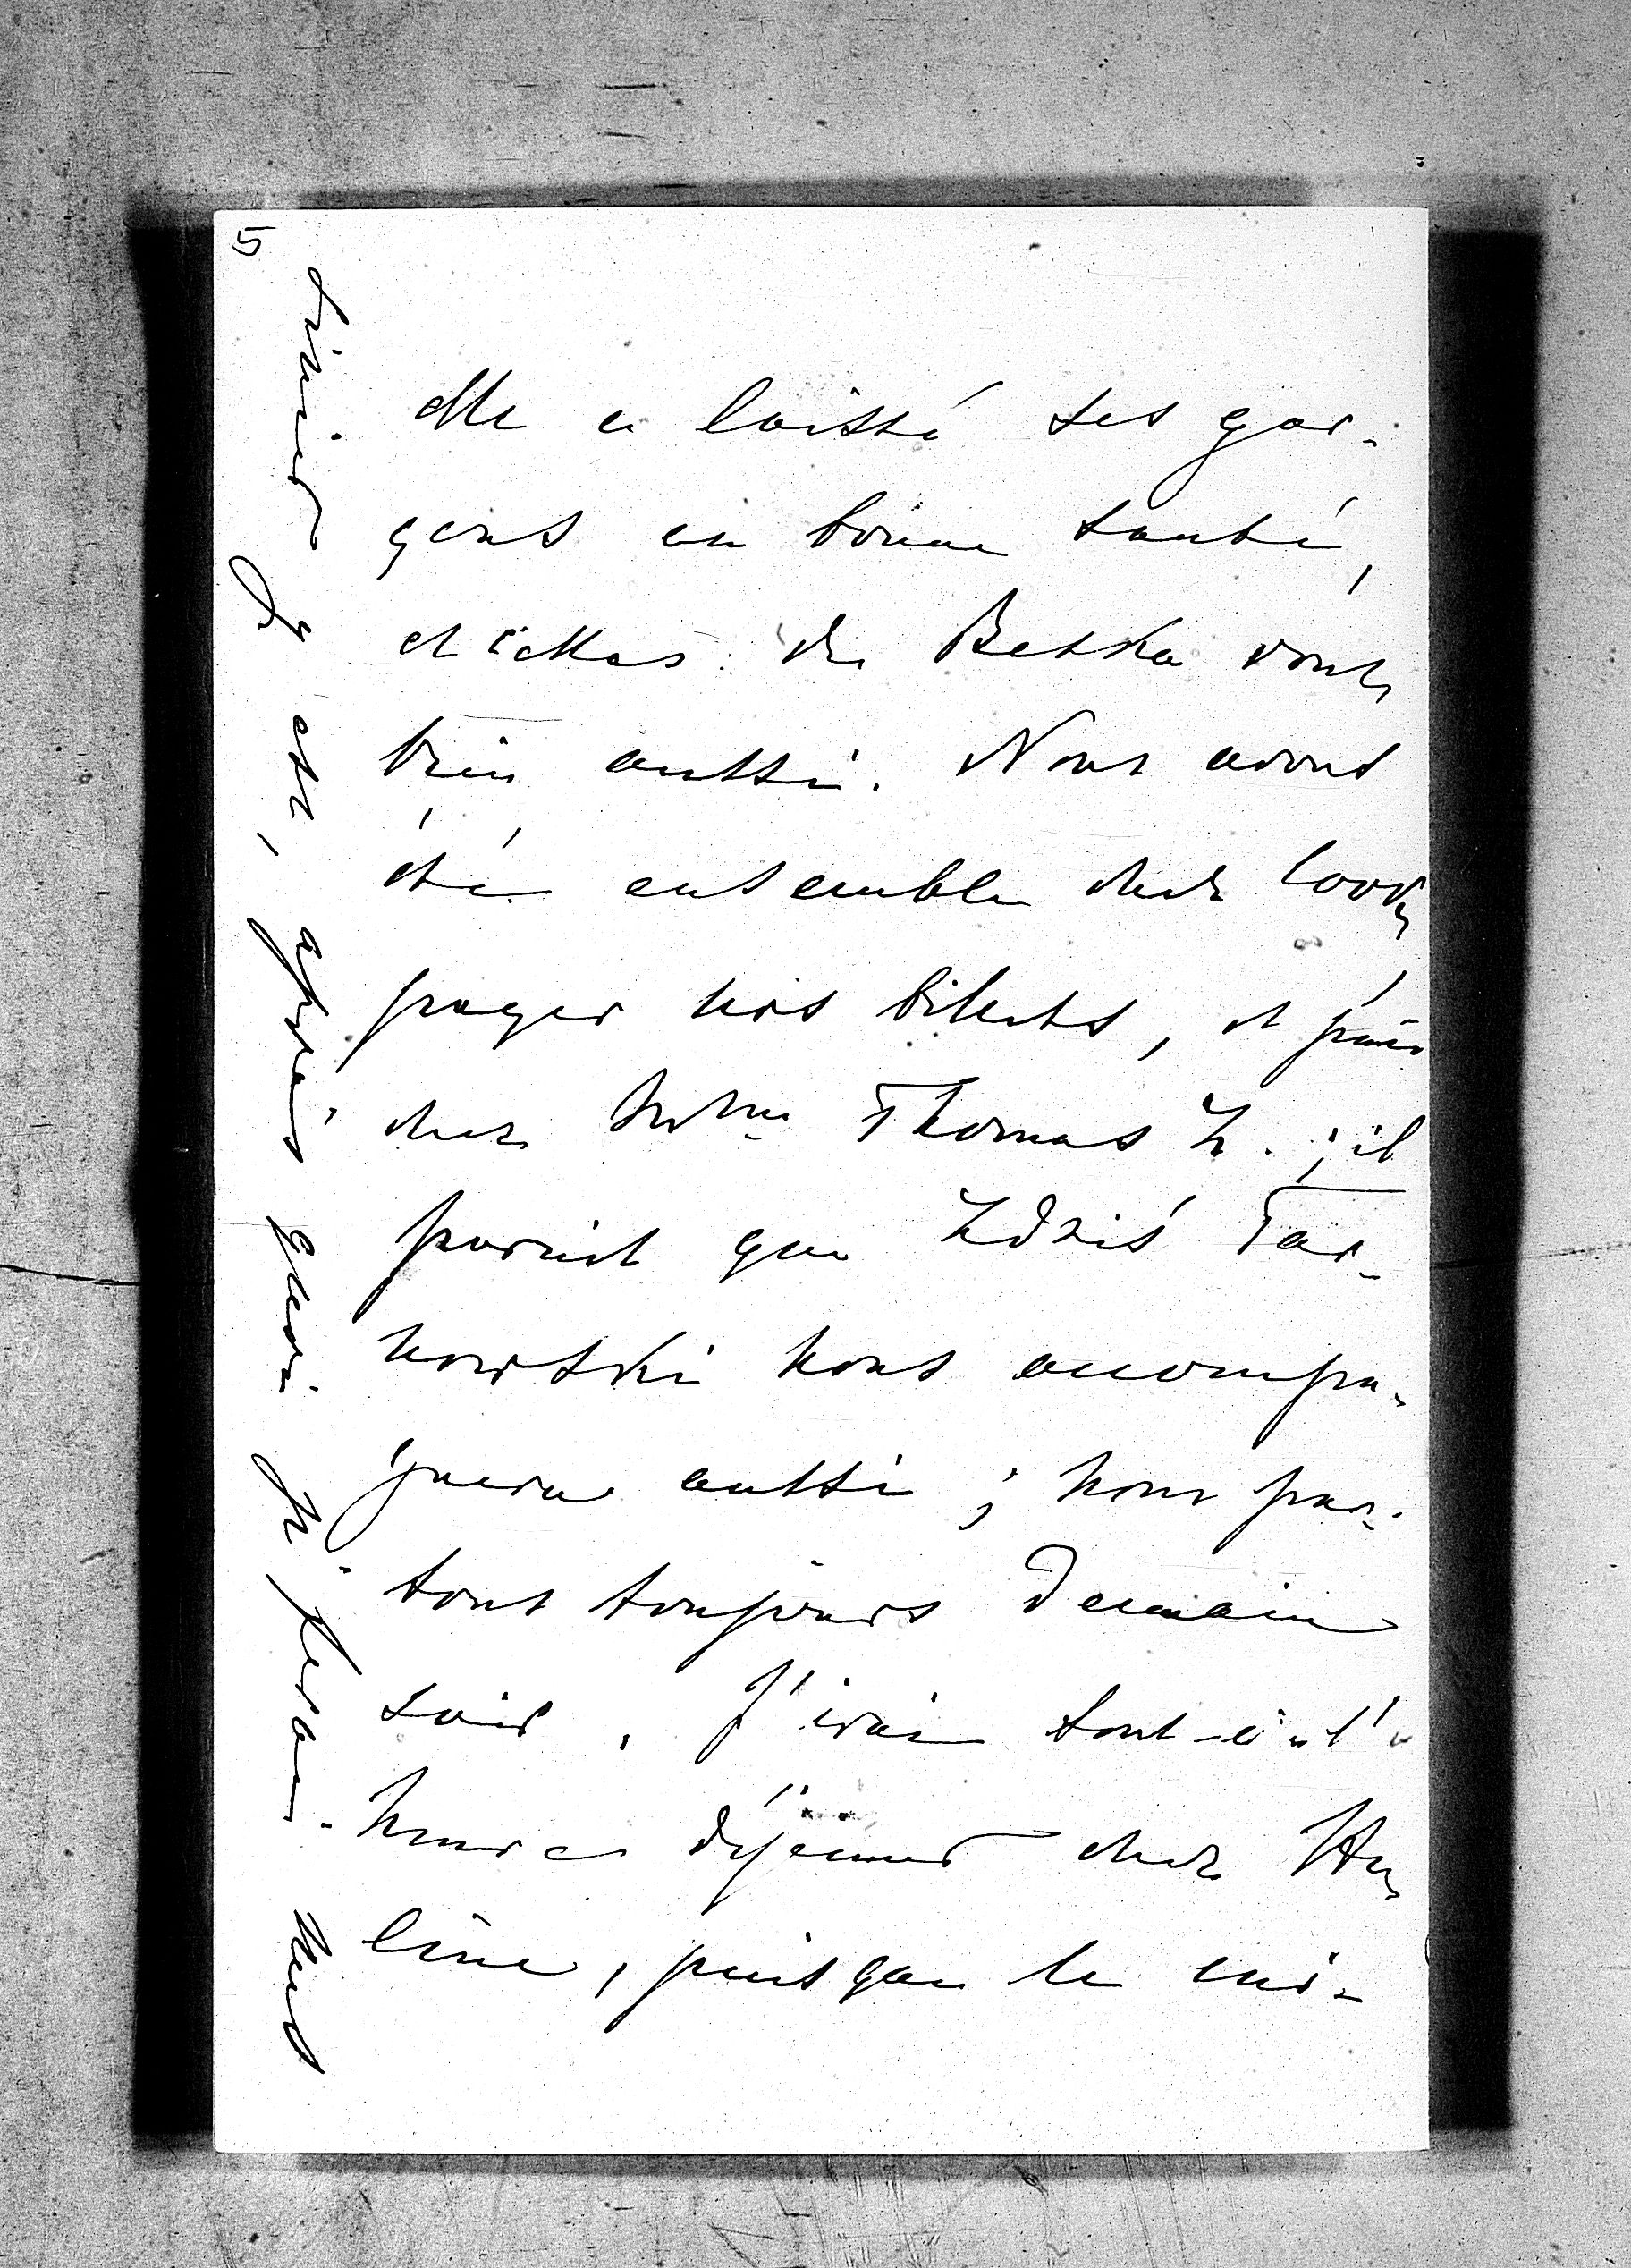 5
elle a laissé ses gar-
çons en bonne santé,
et celles de Betka vont
bien aussi. Nous avons
été ensemble chez Cook,
payer nos billets, et puis
chez Mme Thomas Z. ; il
parait que Zdziś Tar-
nowski nous accompa-
gnera aussi ; nous par-
tons toujours demain
soir. J'irai tout-à-l'
heure déjeuner chez He-
lène, puisque le cui-
sinier y est, après quoi je ferai mes